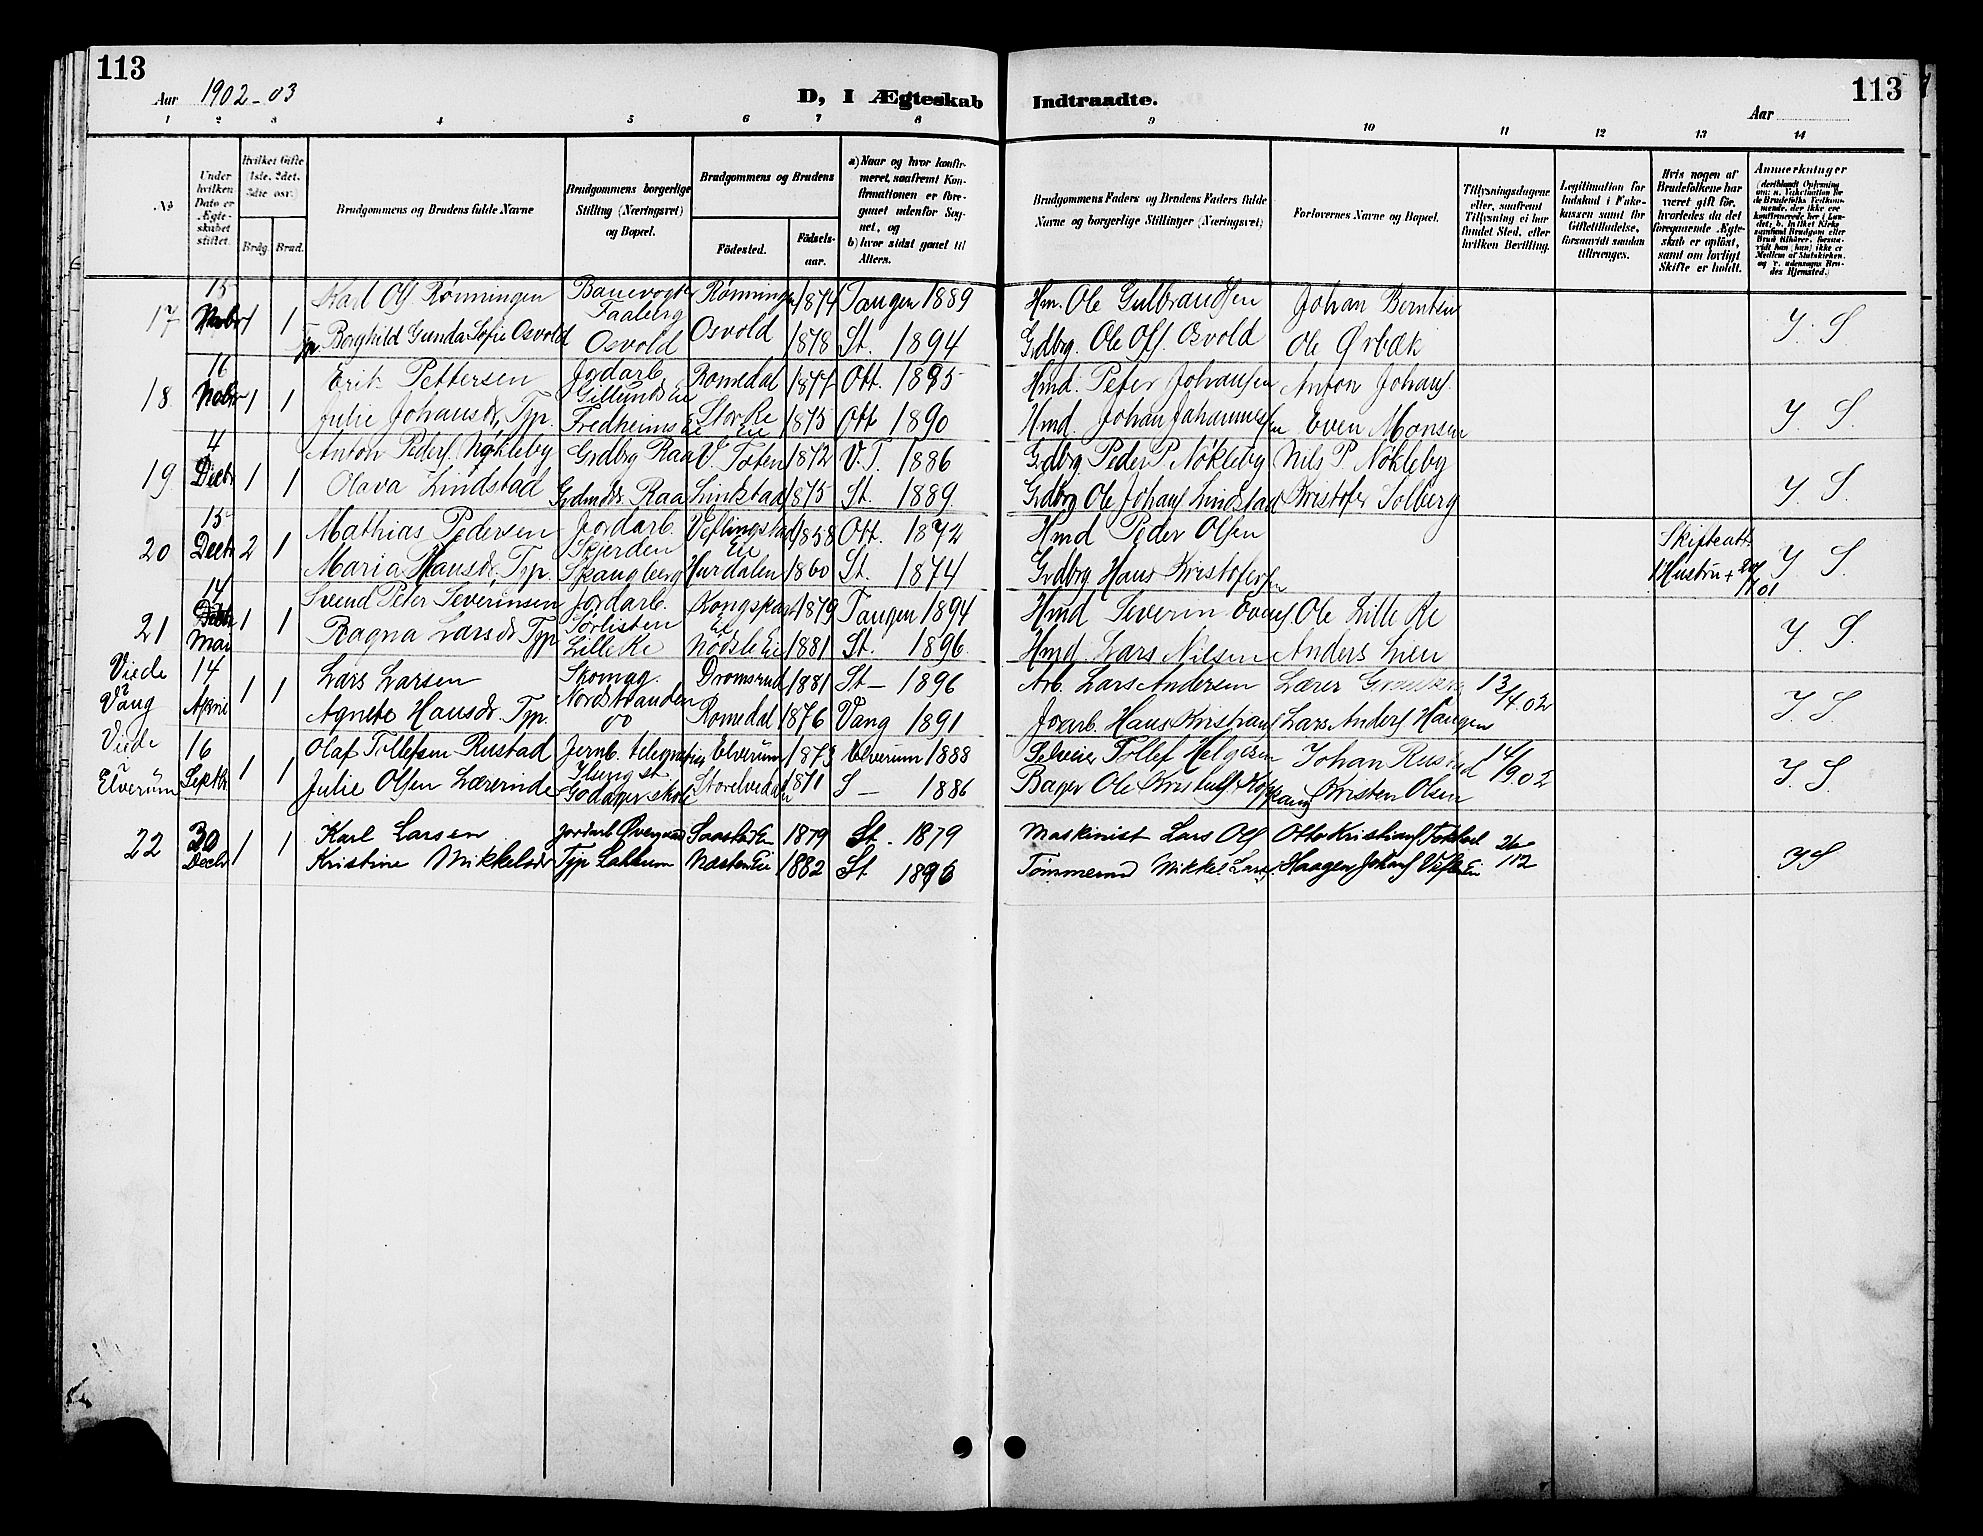 113
113
Aar 1902-03
D, I Ægteskab Indtraadte.
Aar
1 2 3 4 5 6 7 8 9 10 11 12 13 14
№
Under hvilken Dato er Ægteskabet stiftet.
Hvilket Gifte 1ste. 2det. 3die osv.
Brdg. Brud.
Brudgommens og Brudens fulde Navne
Brudgommens borgerlige Stilling (Næringsvei) og Bopæl.
Brudgommens og Brudens
Födested. Födselsaar.
a) Naar og hvor konfirmeret, saafremt Konfirmationen er foregaaet udenfor Sognet, og
b) hvor sidst gaaet til Alters.
Brudgommens Faders og Brudens Faders fulde Navne og borgerlige Stillinger (Næringsvei)
Forlovernes Navne og Bopæl.
Tillysningsdagene eller, saafremt Tillysning ei har fundet Sted, efter hvilken Bevilling.
Legitimation for Indskud i Enkekassen samt for Giftetilladelse, forsaavidt saadan tiltrænges.
Hvis nogen af Brudefolkene har været gift før, hvorledes da det foregaaende Ægteskab er opløst, samt om lovligt Skifte er holdt.
Anmerkninger
15 Karl Ols Rönningen Banevogter Rönningen 1874 Tangen 1889 Hm. Ole Gulbrandsen Johan Berntsen
17 Novbr 1 1 Faaberg I. S
Tp. Borghild Gunda Sofie Osvold Osvold Osvold 1878 St. 1894 Grdbrg. Ole Ols. Osvold Ole Ørbæk
16 Erik Pettersen Jordarb. Romedal 1877 Ott. 1895 Hmd. Peter Johansen Anton Johans
18 Novbr 1 1 Gillundseie I S.
Julie Johansdr, Tjp. Fredheimseie Stor Re Eie 1875 Ott 1890 Hmd. Johan Johannessen Even Monsen
4 Anton Peders. Nökleby Grdbrg Raa V. Toten 1872 V.T. 1886 Grdbrg. Peder P. Nökleby Nils P. Nökleby
19 Decbr 1 1 Olava Lindstad Grdmds. Raa Linkstad 1875 St. 1889 Grdbrg Ole Johans Lindstad Kristofer Solberg I S.
15 Mathias Pedersen Jordarb. Veflingstad Eie 1858 Ott. 1872 Hmd Peder Olsen Skifteatt.
20 Decbr 2 1 Skjerden I S.
Maria Hansdr, Tjp. Spangberg Hurdalen 1860 St. 1874 Grdbrg Hans Kristofersen 1 Hustru +
14 Svend Peter Severinsen Jordarb. 1879 Tangen 1894 Hmd Severin Evens Ole Lille Re
21 Mai 1 1 Sörlisten I S.
Ragna Larsdr Tjp Lille Re Nödsle Eie 1881 St. 1896. Hmd. Lars Nilsen Anders Lien
Viede i Vang 14 April 1 1 Lars Larsen Skomag. Dromsrud 1881 St - 1896 Arb. Lars Andersen Lærer 13/4.02 I. S.
Nordstranden
Agnete Hansdr. Tjp. Romedal 1876 Vang 1891 Jordarb. Hans Kristians Lars Anders Haugen
Viede i Elverum 16 Septbr. 1 1 Olaf Tollefsen Rustad Jernb. telegrafist Elverum 1873 Elverum 1888 Selveier Tollef Helgesen Johan Rustad 14/9.02 I. S.
Ilseng st.
Julie Olsen Lærerinde Godager skole Storelvedalen 1871 S - 1886 Bager Ole Kristen Olsen
22 30 Decbr 1 1 Karl Larsen Jordarb 1879 St. 1879 Maskinist Lars Ols Otto Kristians 26/12 I S
Kristine Mikkelsdr Tjp Lakkum Næsten Eie 1882 St 1896 Tømmermd Mikkel Lars. Haagen Johans